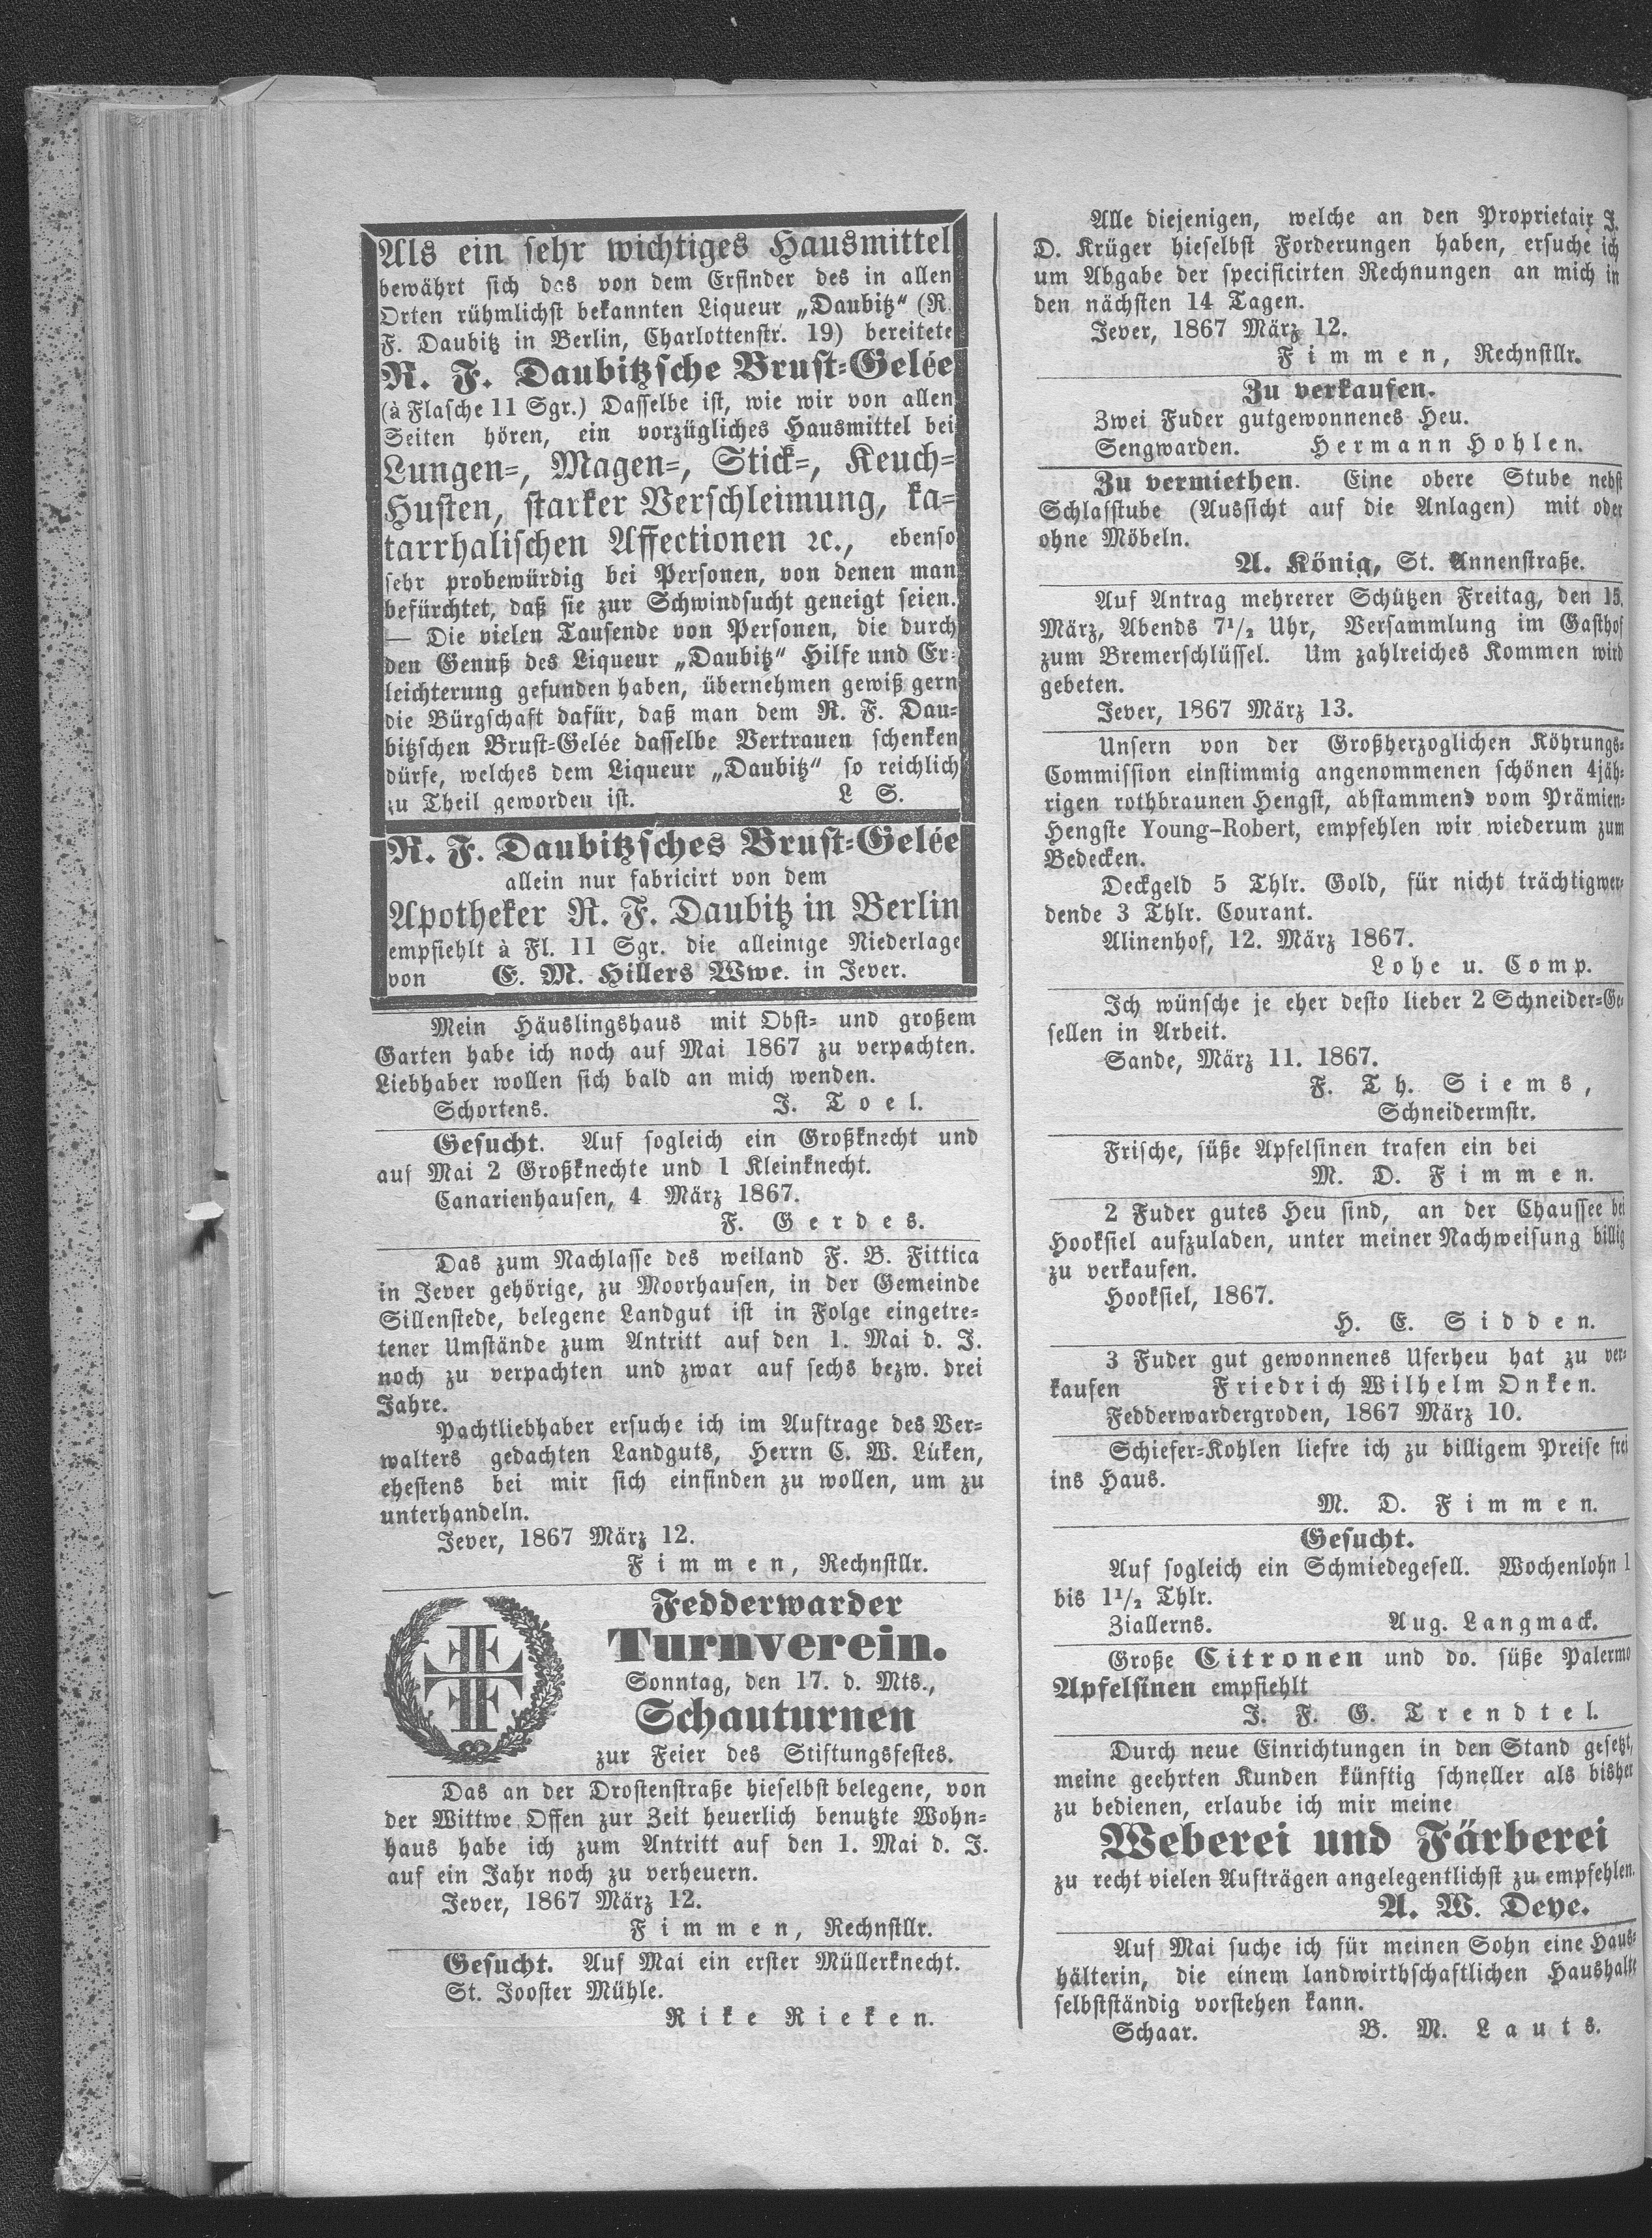 Als ein sehr wichtiges Hausmittel
bewährt sich das von dem Erfinder des in allen
Orten rühmlichst bekannten Liqueur „Daubitz“ (R.
F. Daubitz in Berlin, Charlottenstr. 19) bereitete
R. F. Daubitzsche Brust-Gelée
(à Flasche 11 Sgr.) Dasselbe ist, wie wir von allen
Seiten hören, ein vorzügliches Hausmittel bei
Lungen-, Magen-, Stick-, Keuch-
Husten, starker Verschleimung, ka-
tarrhalischen Affectionen ꝛc., ebenso
sehr probewürdig bei Personen, von denen man
befürchtet, daß sie zur Schwindsucht geneigt seien.
— Die vielen Tausende von Personen, die durch
den Genuß des Liqueur „Daubitz“ Hilfe und Er-
leichterung gefunden haben, übernehmen gewiß gern
die Bürgschaft dafür, daß man dem R. F. Dau-
bitzschen Brust-Gelée dasselbe Vertrauen schenken
dürfe, welches dem Liqueur „Daubitz“ so reichlich
zu Theil geworden ist. L S.
R. F. Daubitzsches Brust-Gelée
allein nur fabricirt von dem
Apotheker R. F. Daubitz in Berlin
empfiehlt à Fl. 11 Sgr. die alleinige Niederlage
von E. M. Hillers Wwe. in Jever.
Mein Häuslingshaus mit Obst- und großem
Garten habe ich noch auf Mai 1867 zu verpachten.
Liebhaber wollen sich bald an mich wenden.
Schortens. J. Toel.
Gesucht. Auf sogleich ein Großknecht und
auf Mai 2 Großknechte und 1 Kleinknecht.
Canarienhausen, 4 März 1867.
F. Gerdes.
Das zum Nachlasse des weiland F. B. Fittica
in Jever gehörige, zu Moorhausen, in der Gemeinde
Sillenstede, belegene Landgut ist in Folge eingetre-
tener Umstände zum Antritt auf den 1. Mai d. J.
noch zu verpachten und zwar auf sechs bezw. drei
Jahre.
Pachtliebhaber ersuche ich im Auftrage des Ver-
walters gedachten Landguts, Herrn C. W. Lüken,
ehestens bei mir sich einfinden zu wollen, um zu
unterhandeln.
Jever, 1867 März 12.
Fimmen, Rechnstllr.
Fedderwarder
Turnverein.
Sonntag, den 17. d. Mts.,
Schauturnen
zur Feier des Stiftungsfestes.
Das an der Drostenstraße hieselbst belegene, von
der Wittwe Offen zur Zeit heuerlich benutzte Wohn-
haus habe ich zum Antritt auf den 1. Mai d. J.
auf ein Jahr noch zu verheuern.
Jever, 1867 März 12.
Fimmen, Rechnstllr.
Gesucht. Auf Mai ein erster Müllerknecht.
St. Jooster Mühle.
Rike Rieken.
Alle diejenigen, welche an den Proprietair J.
D. Krüger hieselbst Forderungen haben, ersuche ich
um Abgabe der specificirten Rechnungen an mich in
den nächsten 14 Tagen.
Jever, 1867 März 12.
Fimmen, Rechnstllr.
Zu verkaufen.
Zwei Fuder gutgewonnenes Heu.
Sengwarden. Hermann Hohlen.
Zu vermiethen. Eine obere Stube nebst
Schlafstube (Aussicht auf die Anlagen) mit oder
ohne Möbeln.
A. König, St. Annenstraße.
Auf Antrag mehrerer Schützen Freitag, den 15.
März, Abends 7½ Uhr, Versammlung im Gasthof
zum Bremerschlüssel. Um zahlreiches Kommen wird
gebeten.
Jever, 1867 März 13.
Unsern von der Großherzoglichen Köhrungs-
Commission einstimmig angenommenen schönen 4jäh-
rigen rothbraunen Hengst, abstammend vom Prämien-
Hengste Young-Robert, empfehlen wir wiederum zum
Bedecken.
Deckgeld 5 Thlr. Gold, für nicht trächtigwer-
dende 3 Thlr. Courant.
Alinenhof, 12. März 1867.
Lohe u. Comp.
Ich wünsche je eher desto lieber 2 Schneider-Ge-
sellen in Arbeit.
Sande, März 11. 1867.
F. Th. Siems,
Schneidermstr.
Frische, süße Apfelsinen trafen ein bei
M. D. Fimmen.
2 Fuder gutes Heu sind, an der Chaussee bei
Hooksiel aufzuladen, unter meiner Nachweisung billig
zu verkaufen.
Hooksiel, 1867.
H. E. Sidden.
3 Fuder gut gewonnenes Uferheu hat zu ver-
kaufen Friedrich Wilhelm Onken.
Fedderwardergroden, 1867 März 10.
Schiefer-Kohlen liefre ich zu billigem Preise frei
ins Haus.
M. D. Fimmen.
Gesucht.
Auf sogleich ein Schmiedegesell. Wochenlohn 1
bis 1½ Thlr.
Ziallerns. Aug. Langmack.
Große Citronen und do. süße Palermo
Apfelsinen empfiehlt
J. F. G. Trendtel.
Durch neue Einrichtungen in den Stand gesetzt,
meine geehrten Kunden künftig schneller als bisher
zu bedienen, erlaube ich mir meine
Weberei und Färberei
zu recht vielen Aufträgen angelegentlichst zu empfehlen.
A. W. Deye.
Auf Mai suche ich für meinen Sohn eine Haus-
hälterin, die einem landwirthschaftlichen Haushalte
selbstständig vorstehen kann.
Schaar. B. M. Lauts.